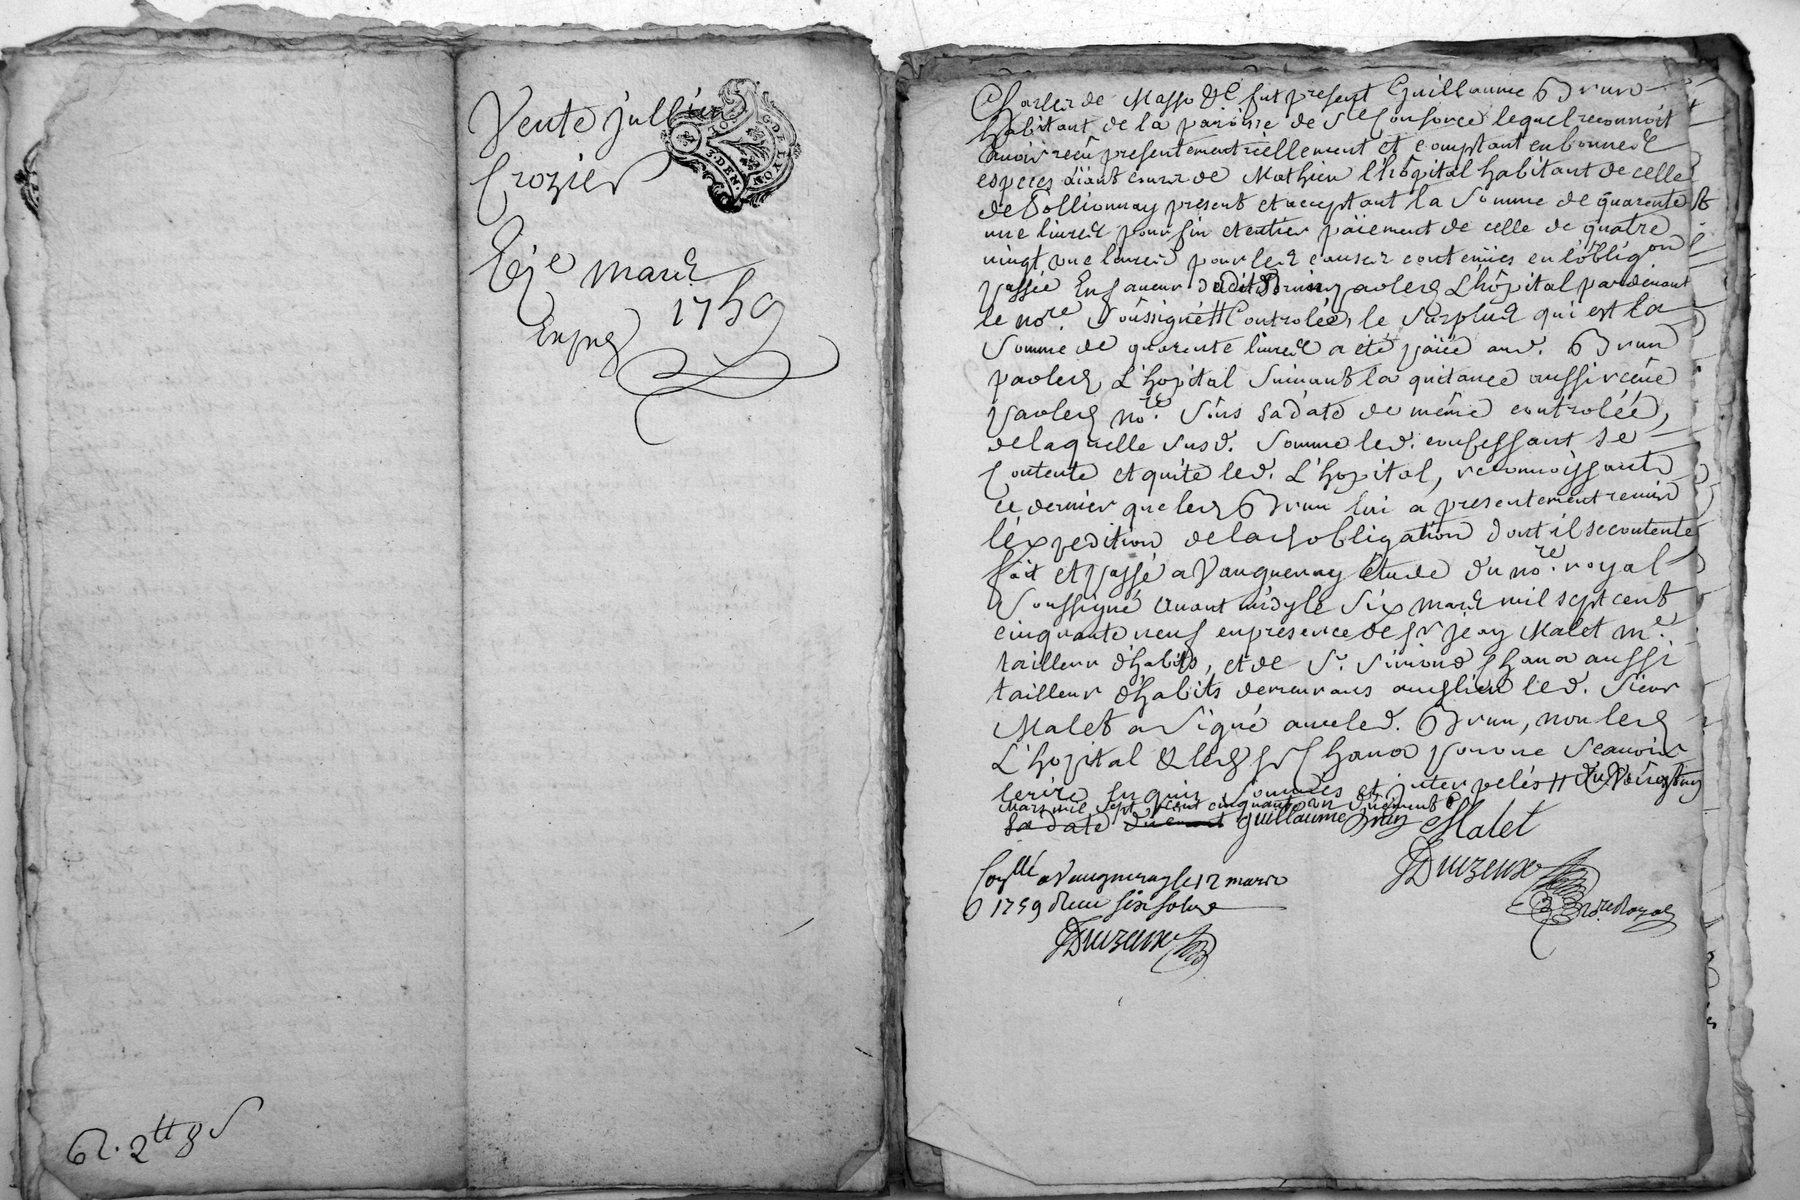 Vente jullien
Crozier
G. DE LYON
3. DEN.
6e mars
1759
Exped
62. 2tt 8s
fut present Guillaume Brun
habitant de la paroisse de Ste Consorce lequel reconnoit
avoir recû presentement réellement et comptant en bonnes
especes aïant cours de Mathieu l'hôpital habitant de celle
de Pollionnay present et acceptant la Somme de quarente et
une livres pour fin et entier païement de celle de quatre
vingt une livres pour les causes contenües en l'oblig.on
passée En faveur dudit Brun par led. L'hôpital pardevant
le no.re Soussigné # Controlée, le Surplus qui est la
Somme de quarente livres a eté païée aud. Brun
par led. L'hopital Suivant la quitance aussi recûe
par led. no.re Sous sa date de même controlée,
de laquelle susd. Somme led. confessant se
Contente et quite led. L'hopital, reconnoissant
ce dernier que led. Brun lui a presentement remis
l'éxpedition de lad. obligation dont il se contente
fait et passé a Vaugneray étude du no.re royal
Soussigné avant midy le Six mars mil sept cent
cinquante neuf en presence de Sr jean Malet me.
tailleur d'habits, et de Sr. Simond Chana aussi
tailleur d'habits demeurans aud. lieu led. Sieur
Malet a Signé avec led. Brun, non led.
L'hopital & led. Sr Chana pour ne Scavoir
ecrire Enquis Sommés et interpelés #
mars mil sept cent cinquante un dûement
sa date dûement guillaume Brun Malet
Conllé a Vaugneray le 12 mars
1759 Reçu six sols